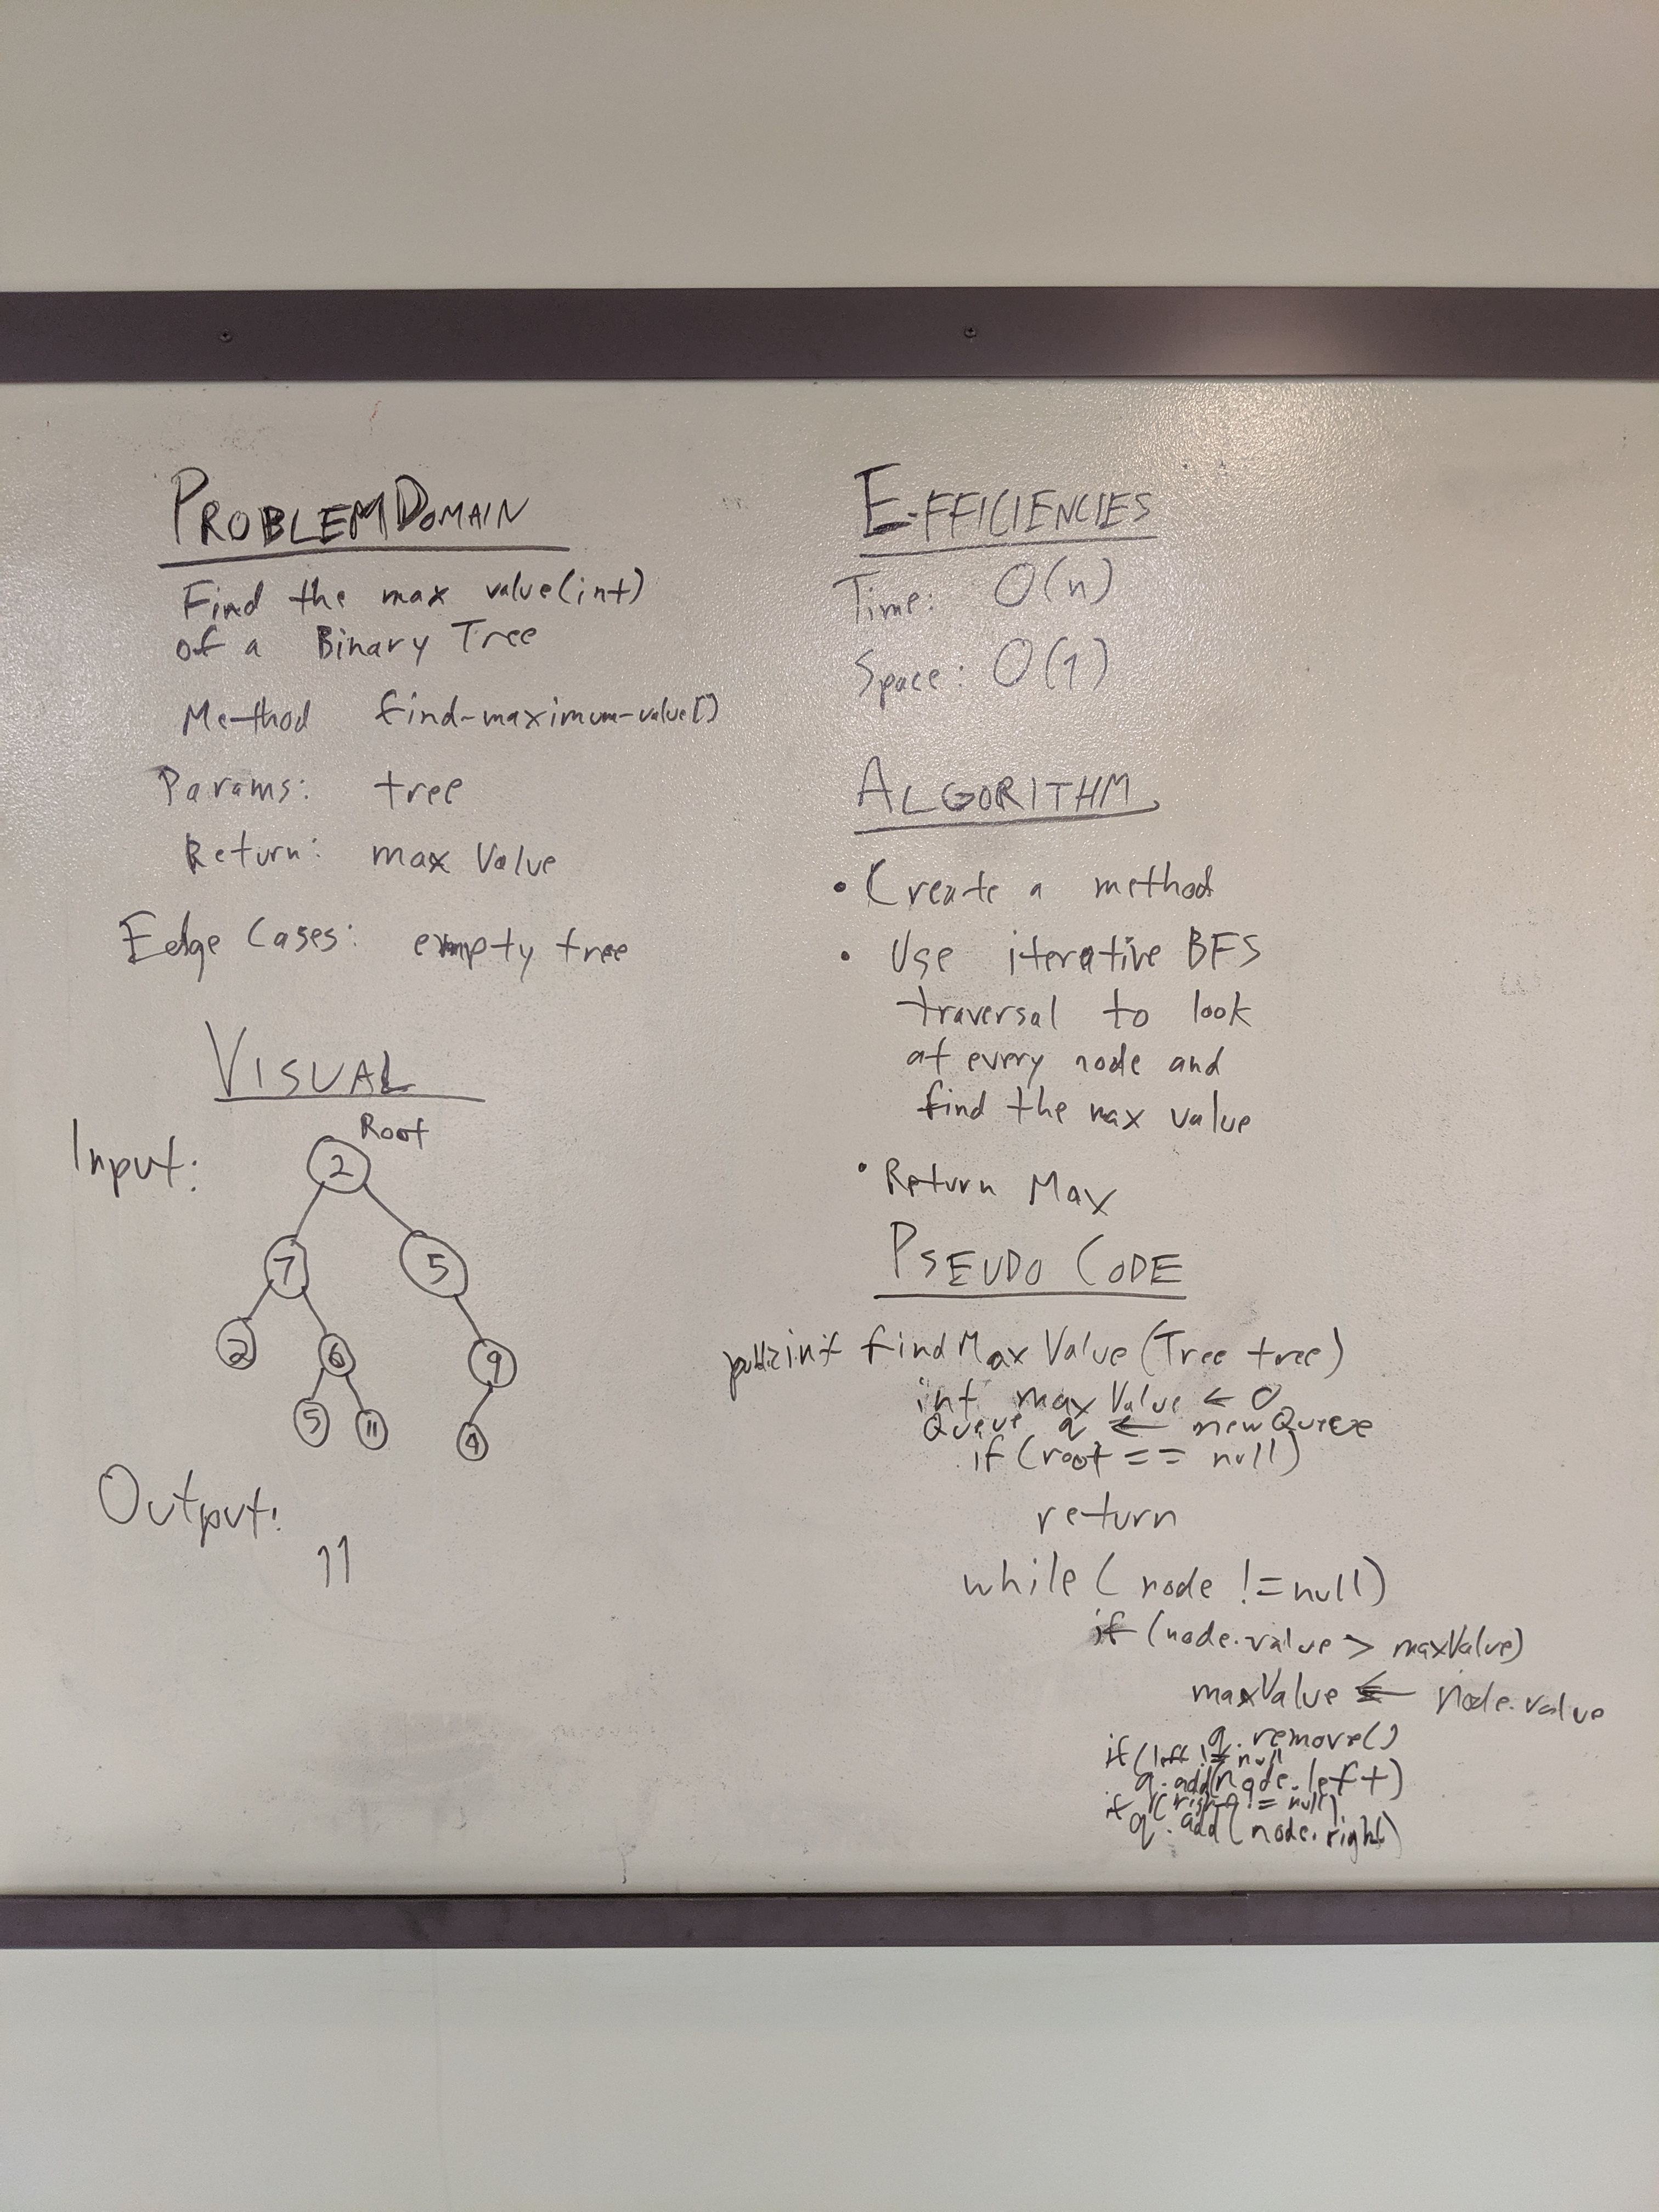 PROBLEM DOMAIN
Find the max value(int)
of a Binary Tree
Method find-maximum-value()
Params: tree
Return: max Value
Edge Cases: empty tree
VISUAL
Root
Input:
2
7 5
2 6 9
5 11 4
Output:
11
EFFICIENCIES
Time: O(n)
Space: O(1)
ALGORITHM
• Create a method
• Use iterative BFS
traversal to look
at every node and
find the max value
• Return Max
PSEUDO CODE
public int findMaxValue(Tree tree)
int maxValue ← 0
Queue q ← new Queue
if (root == null)
return
while (node != null)
if (node.value > maxValue)
maxValue ← node.value
q.remove()
if (left != null
q.add(node.left)
if (right != null)
q.add(node.right)